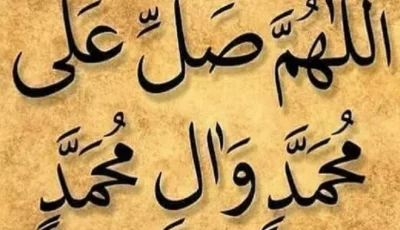 اللّٰهُمَّ صَلِّ عَلَى
مُحَمَّدٍ وَالِ مُحَمَّدٍ